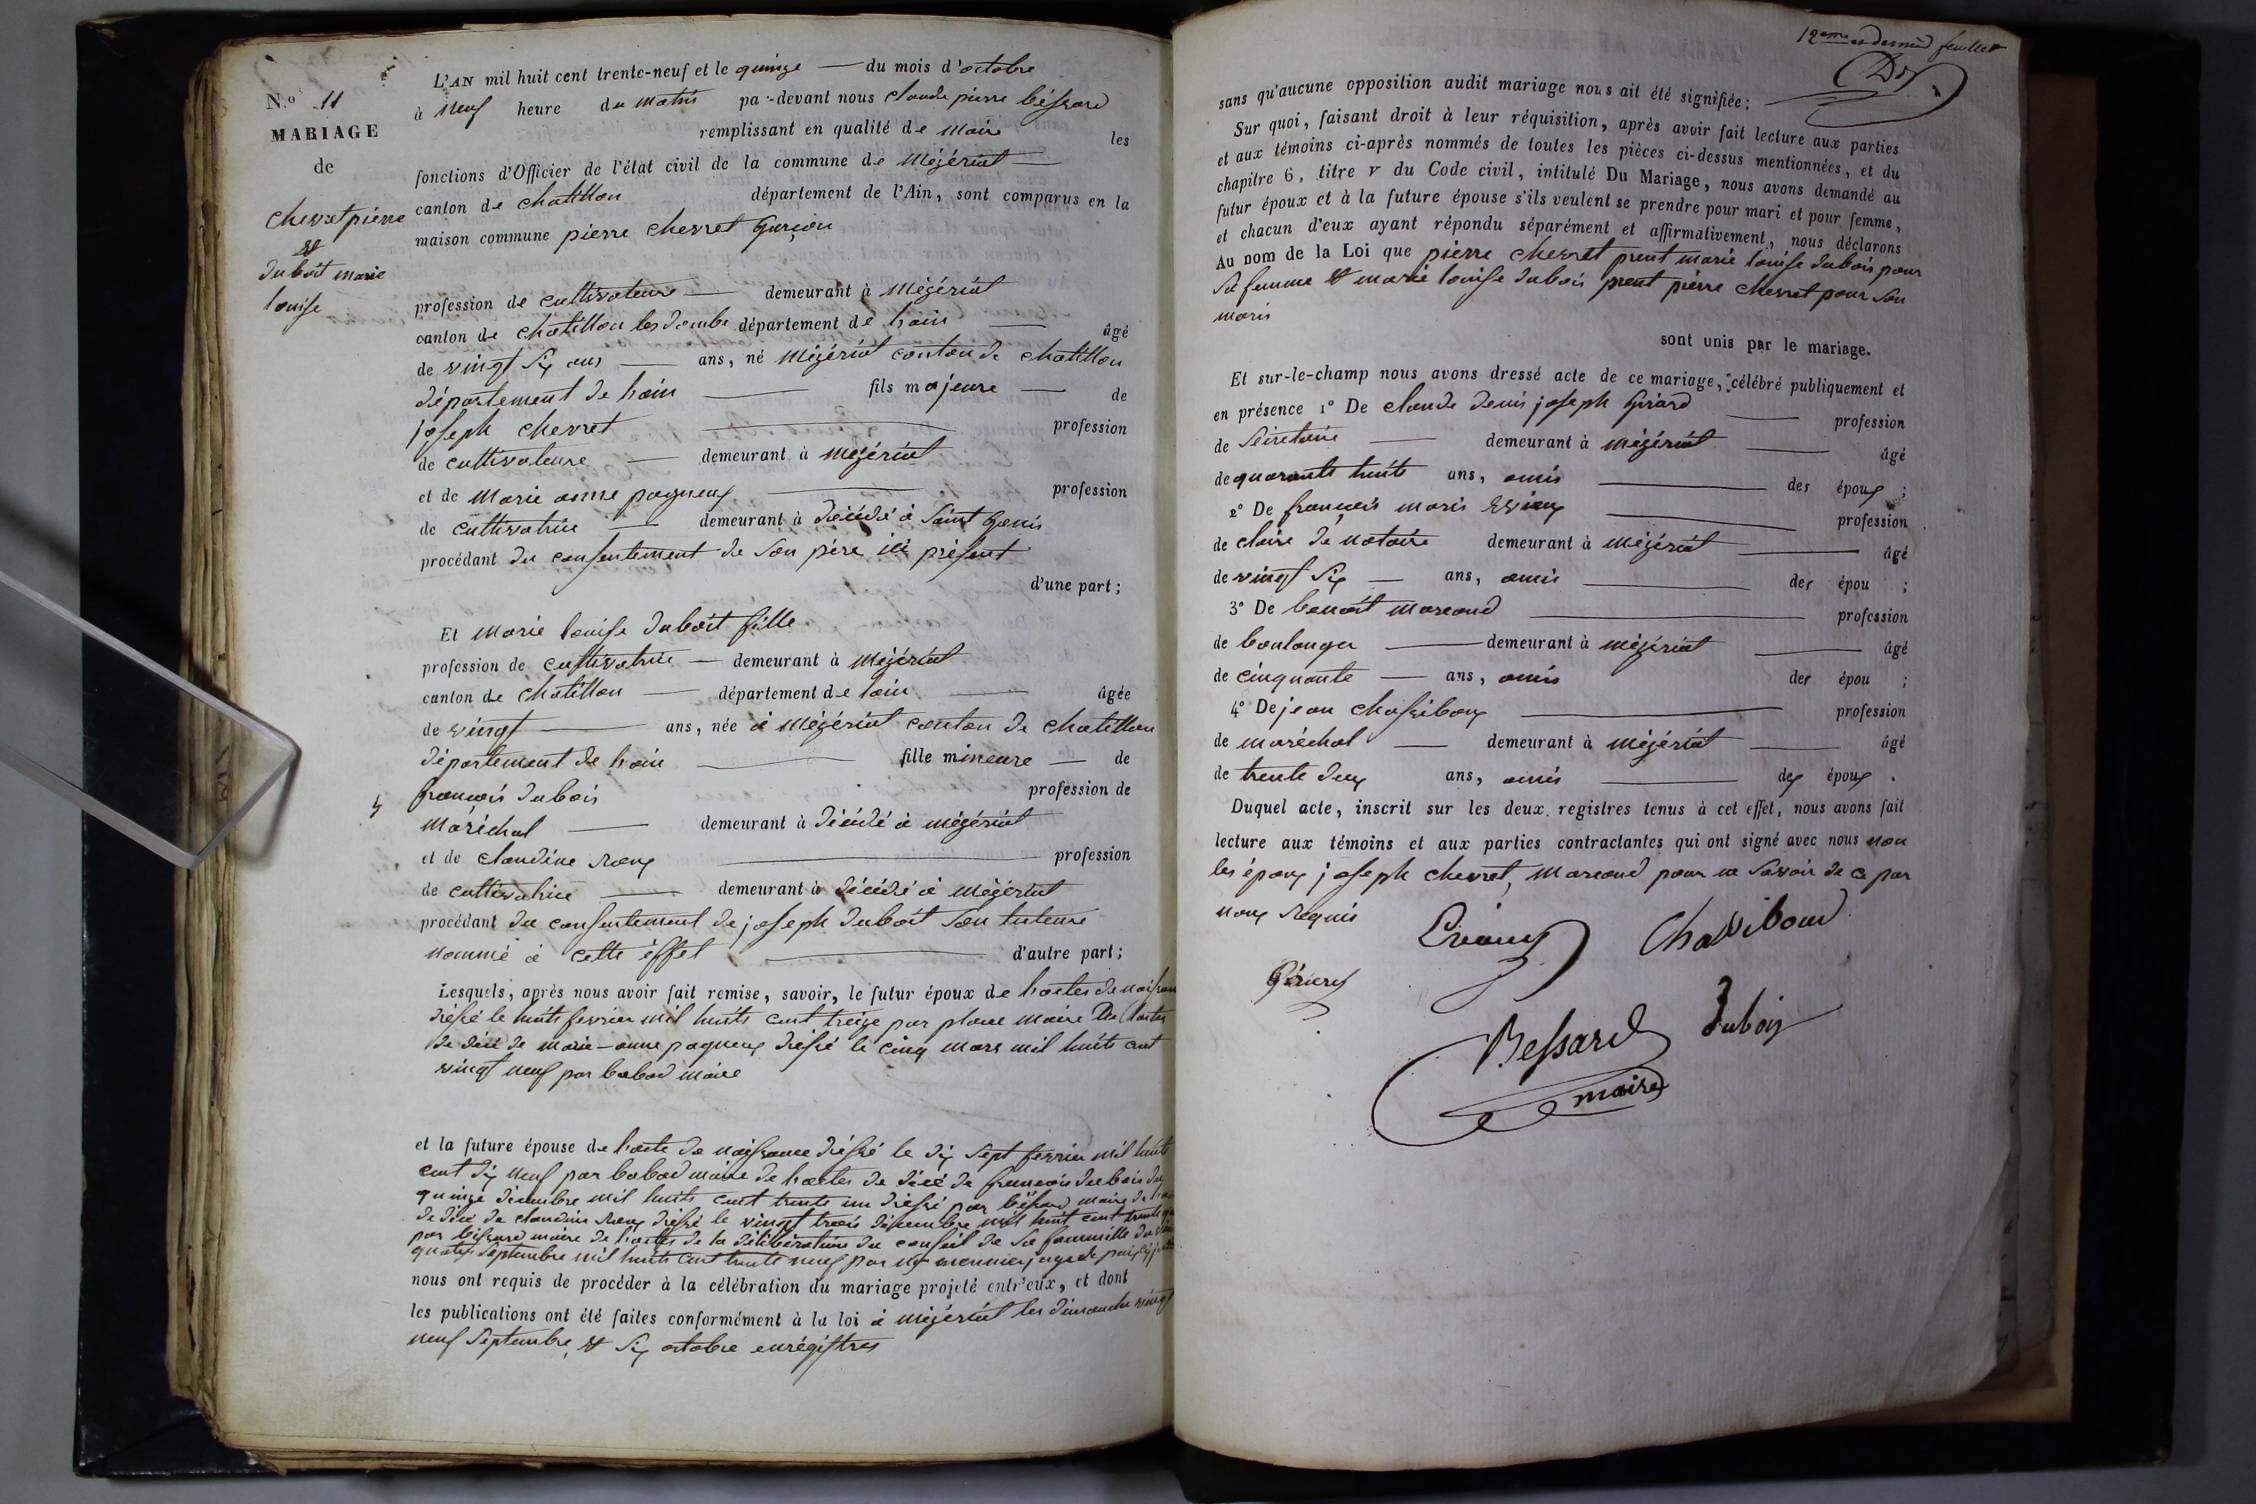 N.o 11
MARIAGE
de
chevret pierre
et
duboit marie
louise
L'AN mil huit cent trente-neuf et le quinze du mois d'octobre
à neuf heure du matin pa-devant nous claude pierre béssard
remplissant en qualité de maire les
fonctions d'Officier de l'état civil de la commune de mézériat
canton de chatillon département de l'Ain, sont comparus en la
maison commune pierre chevret garçon
profession de cultivateure demeurant à mézériat
canton de chatillon les dombe département de l'ain âgé
de vingt six ans ans, né mézériat canton de chatillon
département de l'ain fils majeure de
joseph chevret profession
de cultivateure demeurant à mézériat
et de marie anne pagneux profession
de cultivatrice demeurant à décédé à saint genis
procédant du consentement de son père ici présent
d'une part;
Et marie louise duboit fille
profession de cultivatrice demeurant à mézériat
canton de chatillon département de lain âgée
de vingt ans, née à mézériat canton de chatillon
département de l'ain fille mineure de
françois dubois profession de
maréchal demeurant à décédé à mézériat
et de claudine roux profession
de cultivatrice demeurant à décédé à mézériat
procédant du consentement de joseph duboit son tuteure
nommé à cette éffet d'autre part;
Lesquels, après nous avoir fait remise, savoir, le futur époux de l'actes de naissan
dréssé le huits fevrier mil huits cent treize par maire de l'actes
de décé de marie-anne pagneux dréssé le cinq mars mil huits cent
vingt neuf par babad maire
et la future épouse de l'acte de naissance dréssé le dix sept fevrier mil huits
cent dix neuf par babad maire de l'actes de décé de françois dubois du
quinze décembre mil huits cent trente un dréssé par béssard maire de
de décé de claudine roux dréssé le vingt trois décembre mil huit cent trente
par béssard maire de l'actes de la délibération du conseil de sa fammille du
quatre septembre mil huits cent trente neuf par monnier juge de paix
nous ont requis de procéder à la célébration du mariage projeté entr'eux, et dont
les publications ont été faites conformément à la loi à mézériat les dimanche vingt
neuf septembre et six octobre enrégistres
12eme et dernied feuillet
sans qu'aucune opposition audit mariage nous ait été signifiée;
Sur quoi, faisant droit à leur réquisition, après avoir fait lecture aux parties
et aux témoins ci-après nommés de toutes les pièces ci-dessus mentionnées, et du
chapitre 6, titre V du Code civil, intitulé Du Mariage, nous avons demandé au
futur époux et à la future épouse s'ils veulent se prendre pour mari et pour femme,
et chacun d'eux ayant répondu séparément et affirmativement, nous déclarons
Au nom de la Loi que pierre chevret prent marie louise dubois pour
sa femme et marie louise dubois prent pierre chevret pour son
maris
sont unis par le mariage.
Et sur-le-champ nous avons dressé acte de ce mariage, célébré publiquement et
en présence 1° De claude denis joseph girard profession
de Séiretaire demeurant à mézériat âgé
de quarante huits ans, amis des époux;
2° De françois maris profession
de claire de notaire demeurant à mézériat âgé
de vingt six ans, amis des épou;
3° De benoit marcand profession
de boulanger demeurant à mézériat âgé
de cinquante ans, amis des épou;
4° De jean chassiboux profession
de maréchal demeurant à mézériat âgé
de trente deux ans, amis des époux.
Duquel acte, inscrit sur les deux registres tenus à cet effet, nous avons fait
lecture aux témoins et aux parties contractantes qui ont signé avec nous non
les époux joseph chevret, marcand pour ne savoir de ce par
nous requis
Chassiboud
Bessard Dubois
maire